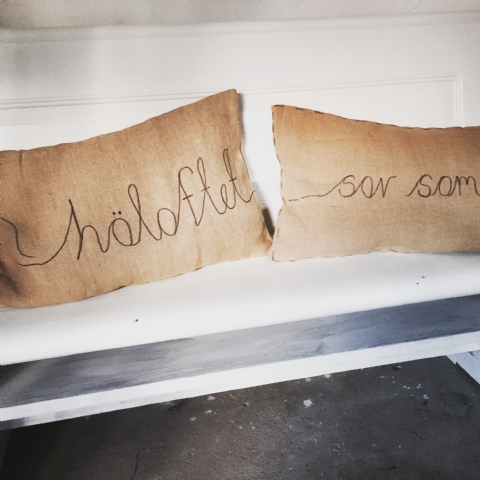 hölaftet
sov som